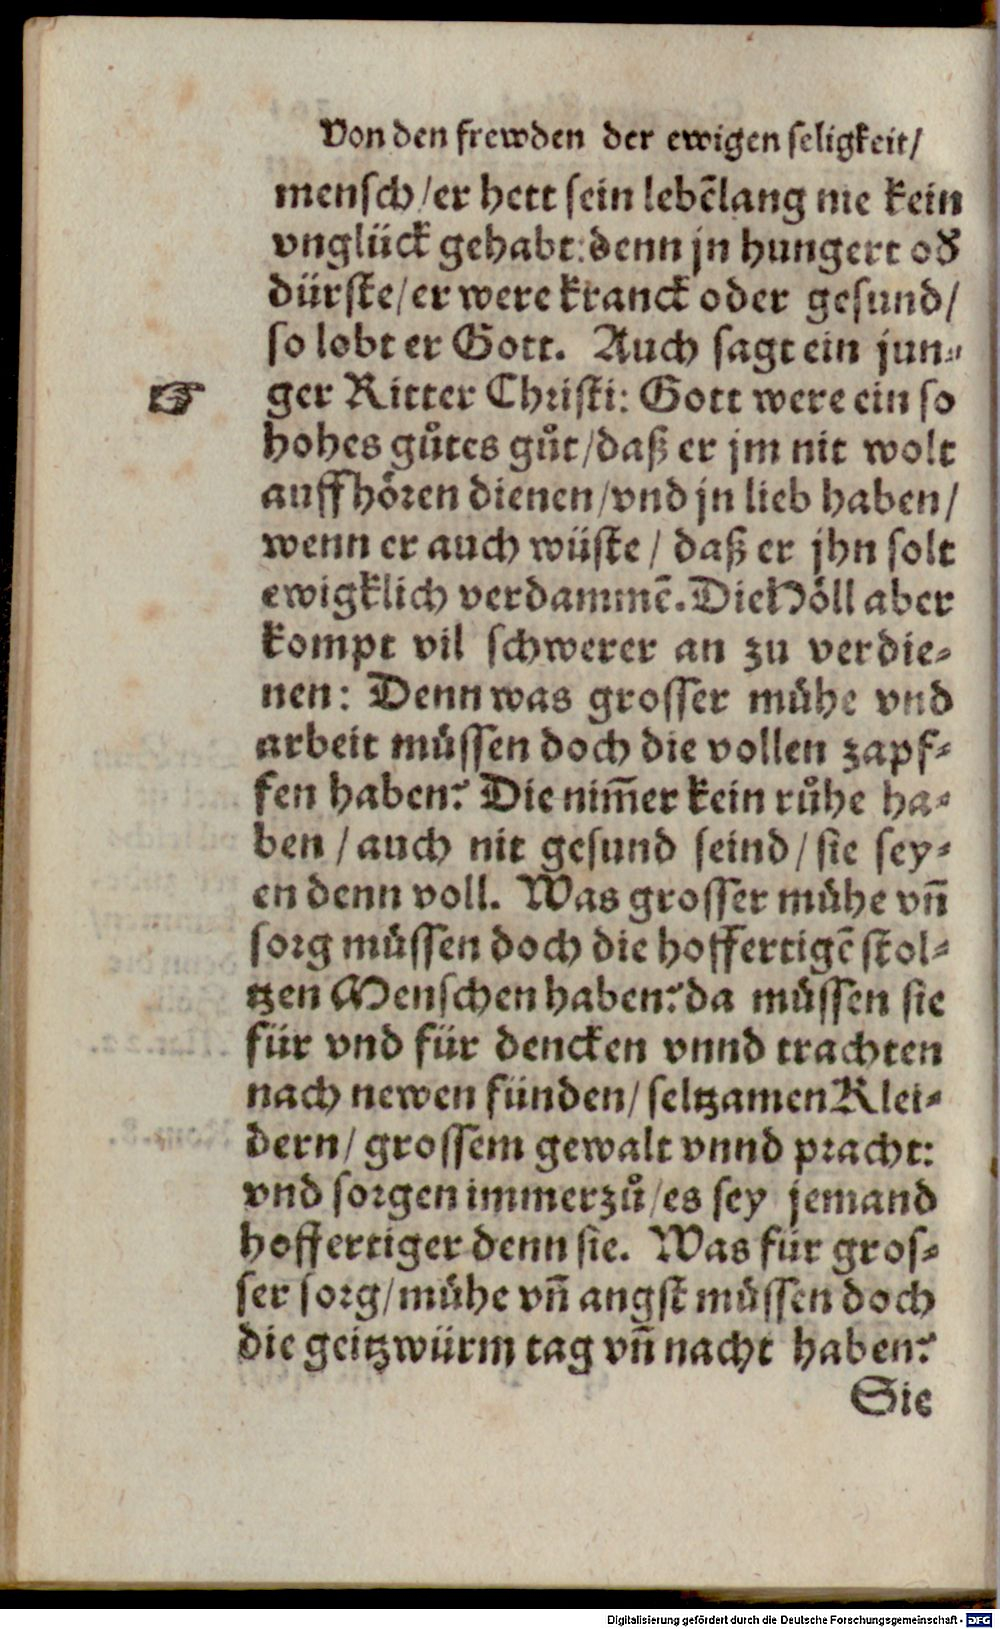 Von den frewden der ewigen seligkeit/
mensch/er hett sein lebẽlang nie kein
vnglück gehabt:denn jn hungert od
dürste/er were kranck oder gesund/
so lobt er Gott. Auch sagt ein jun-
☞ ger Ritter Christi: Gott were ein so
hohes gůtes gůt/daß er jm nit wolt
auffhören dienen/vnd jn lieb haben/
wenn er auch wüste/ daß er jhn solt
ewigklich verdammẽ. Die Höll aber
kompt vil schwerer an zu verdie-
nen: Denn was grosser mühe vnd
arbeit müssen doch die vollen zapf-
fen haben? Die nim̃er kein růhe ha-
ben/auch nit gesund seind/sie sey-
en denn voll. Was grosser mühe vñ
sorg müssen doch die hoffertigẽ stol-
tzen Menschen haben?da müssen sie
für vnd für dencken vnnd trachten
nach newen fünden/seltzamen Klei-
dern/ grossem gewalt vnnd pracht:
vnd sorgen immerzů/es sey jemand
hoffertiger denn sie. Was für gros-
ser sorg/mühe vñ angst müssen doch
die geitzwürm tag vñ nacht haben?
Sie
Digitalisierung gefördert durch die Deutsche Forschungsgemeinschaft - DFG